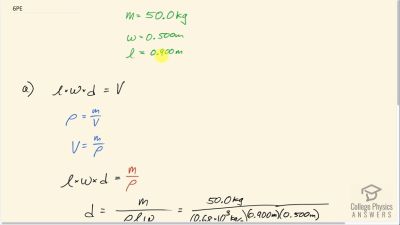 6PE
m = 50.0 kg
w = 0.500m
l = 0.900m
a) l · w · d = V
ρ = m/V
V = m/ρ
l · w · d = m/ρ
d = m/ρlw = 50.0 kg/(0.68·10³ (0.900m)(0.500m)
College Physics
ANSWERS